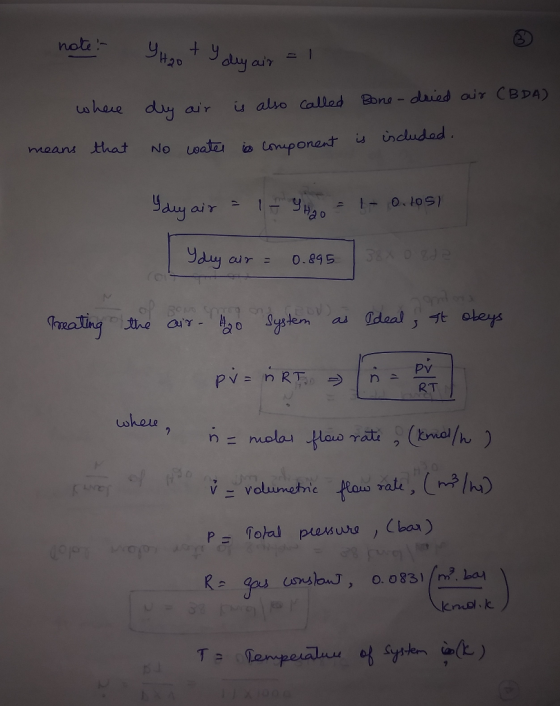 3
note:- yH2O + ydry air = 1
where dry air is also called Bone-dried air (BDA)
means that No water is component is included.
ydry air = 1 - yH2O = 1 - 0.1051
ydry air = 0.895
Treating the air-H2O System as Ideal, It obeys
pv̇ = ṅRT ⇒ ṅ = Pv̇/RT
where,
ṅ = molar flow rate, (kmol/h)
v̇ = volumetric flow rate, (m³/hr)
P = Total pressure, (bar)
R = gas constant, 0.0831 (m³.bar/kmol.k)
T = Temperature of System in (k)